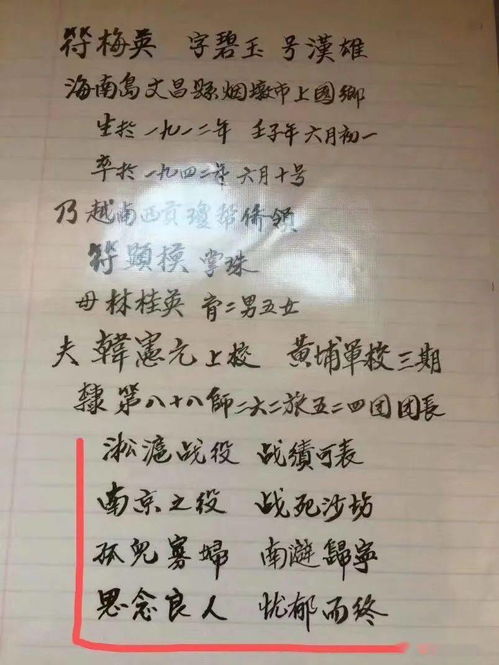 符梅英 字碧玉 号漢雄
海南島文昌縣烟墩市上國鄉
生於一九一二年 壬子年六月初一
卒於一九四二年六月十号
乃越南西貢瓊幫僑領
符顕模 掌珠
母林桂英 育二男五女
夫 韓憲元上校 黄埔軍校三期
隸第八十八師二六二旅五二四团团長
淞滬战役 战績可表
南京之役 战死沙坊
孤兒寡婦 南遊歸寧
思念良人 忧郁而终